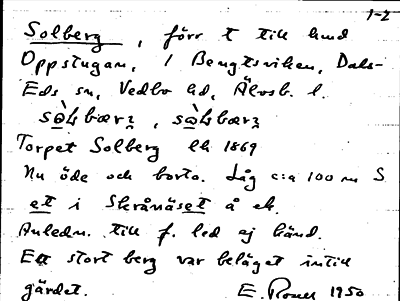 1-2
Solberg, förr t till hmd
Oppstugan, 1 Bengtsviken, Dals-
Eds sn, Vedbo hd, Älvsb. l.
Torpet Solberg ek 1869
Nu öde och borta. Låg c:a 100 m S
et i Skrånäset å ek.
Anledn. till f. led ej känd.
Ett stort berg var beläget intill
gärdet. E. 1950